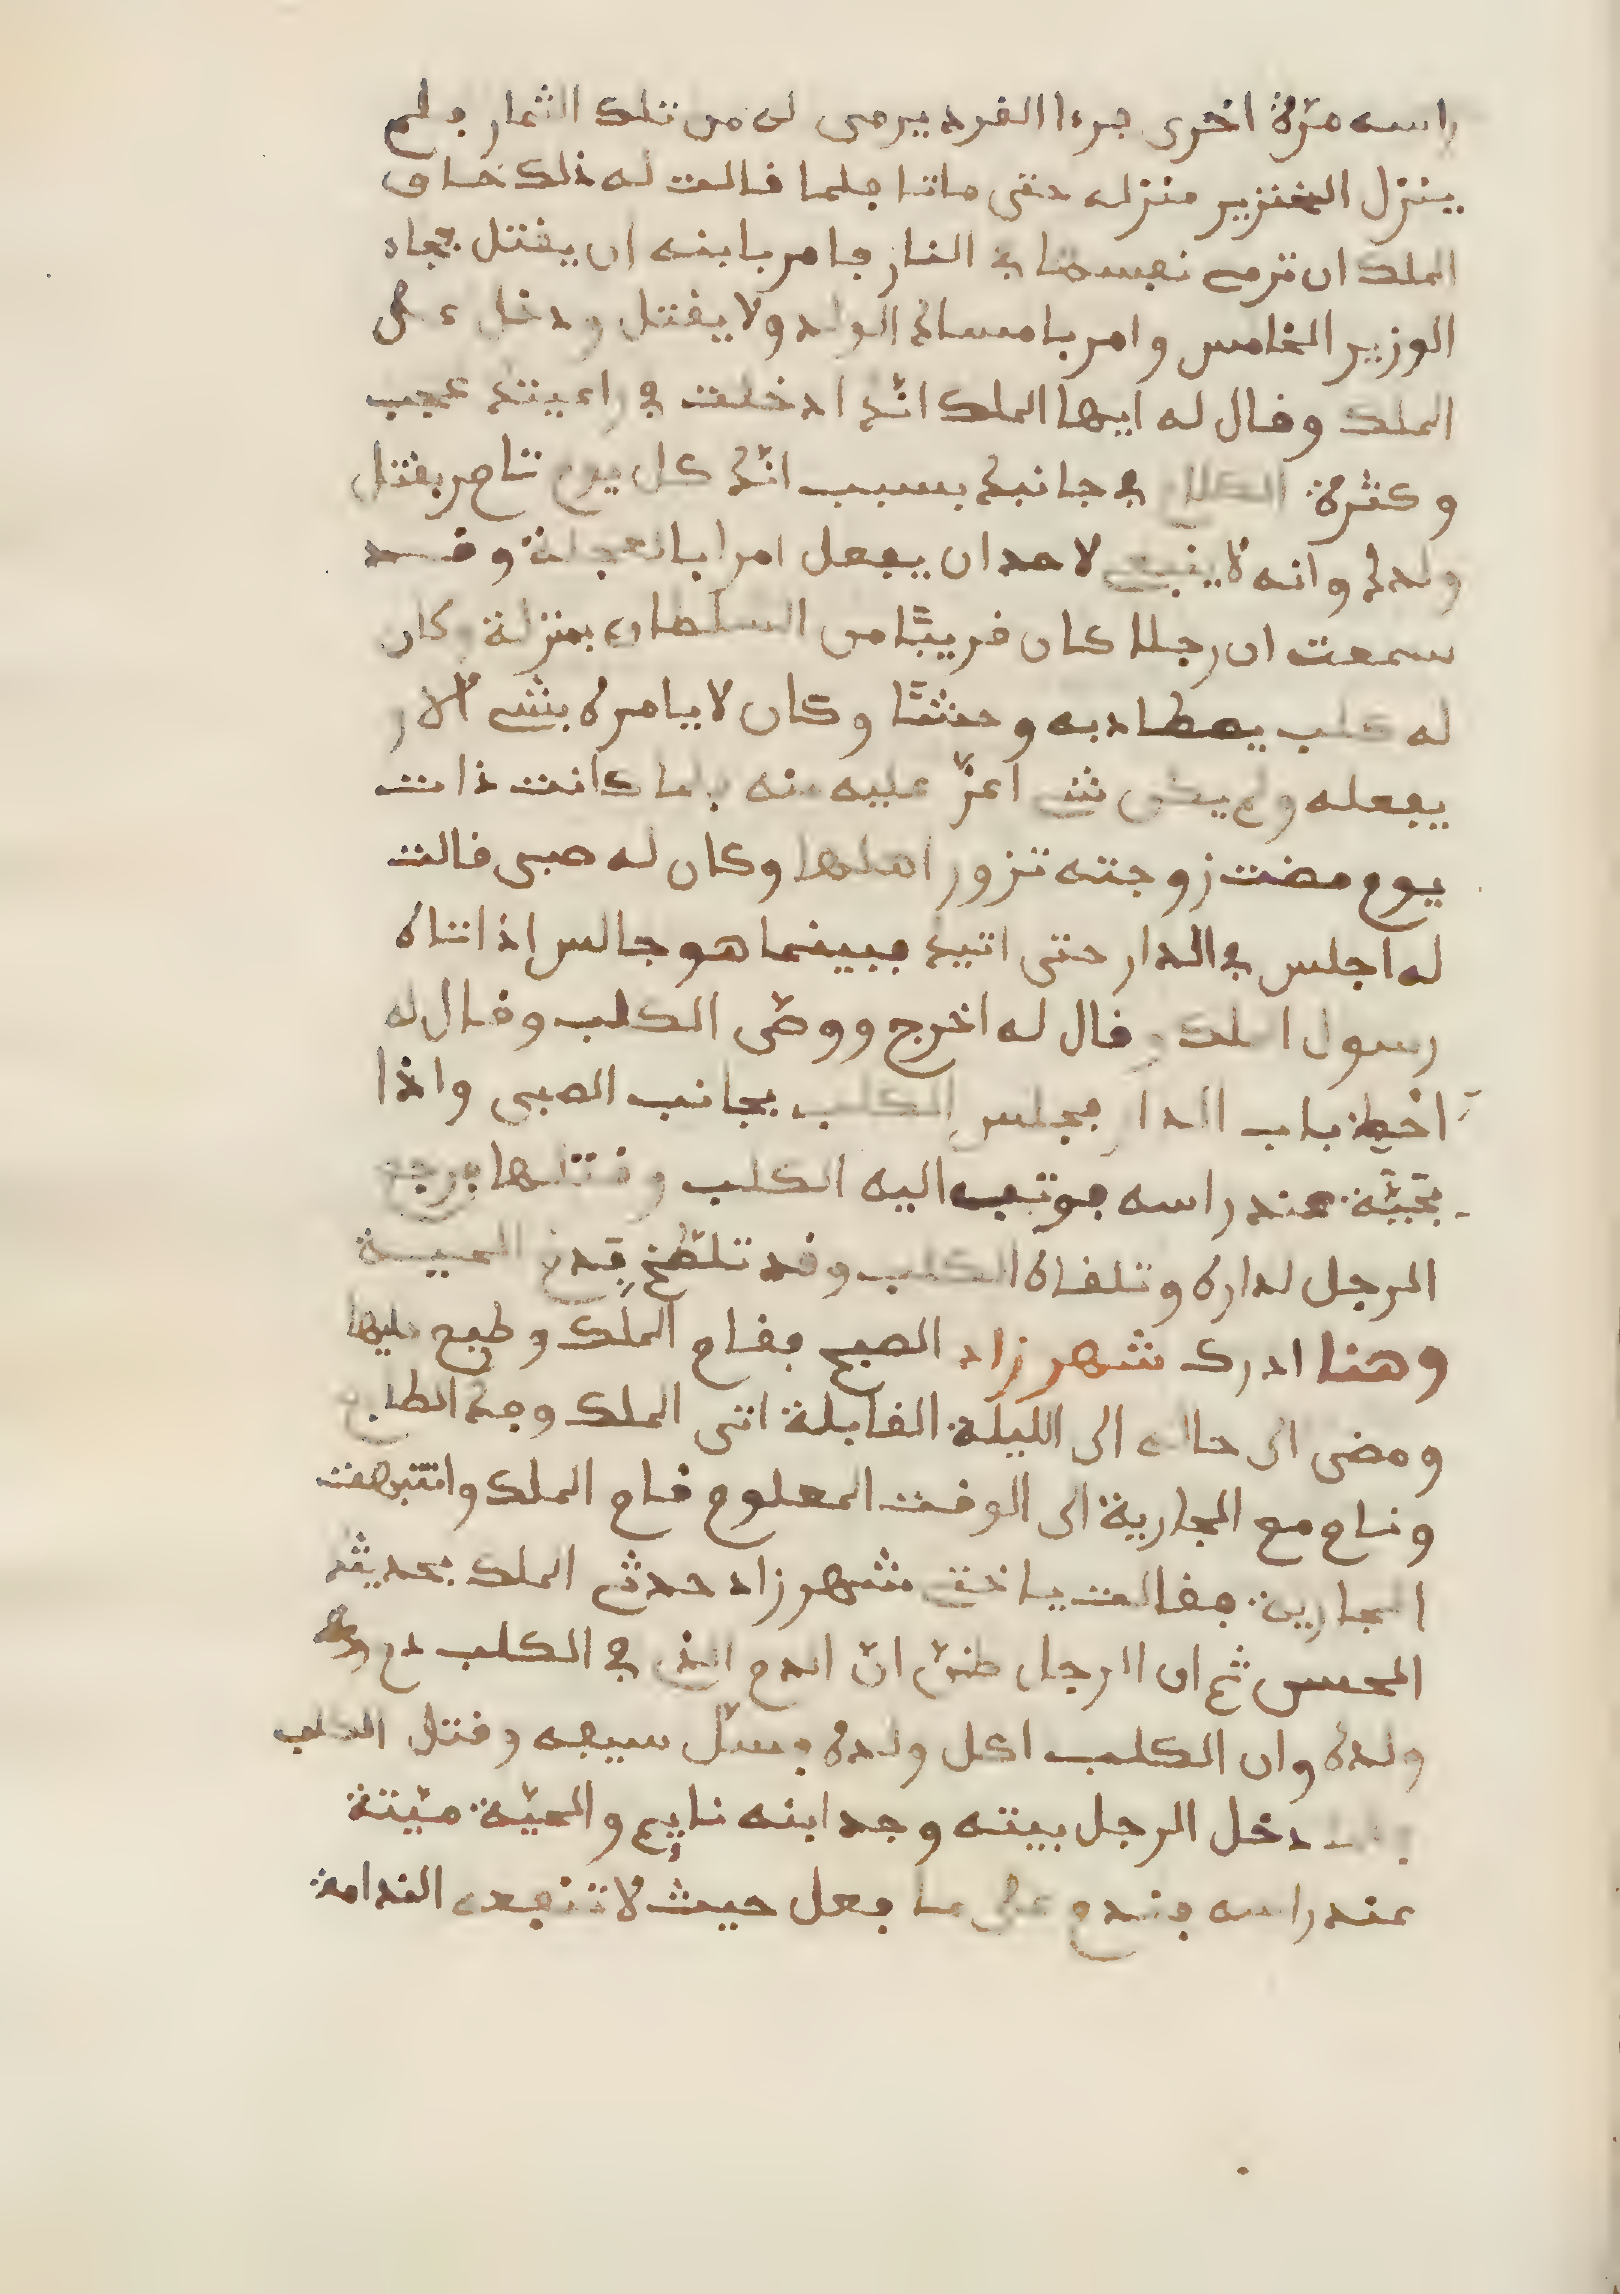 راسه مرّة اخرى فرءا القرد يرمى له من تلك الثمار ولم
ينزل الخنزير منزله حتى ماتا فلما قالت له ذلك خاف
الملك ان ترمى نفسها في النار فامر بابنه ان يقتل فجاء
الوزير الخامس وامر بامساك الولد ولا يقتل ودخل على
الملك وقال له ايها الملك انّك ادخلت في راءيتك عجب
وكثرة الكلام في جانبك بسبب انّك كل يوم تامر بقتل
ولدك وانه لا ينبغى لاحد ان يفعل امرا بالعجلة وقد
سمعت ان رجلا كان قريبًا من السلطان بمنزلة وكان
له كلب يصطاد به وحشًا وكان لا يامره بشى الا و
يفعله ولم يكن شى اعزّ عليه منه فلما كانت ذات
يوم مضت زوجته تزور اهلها وكان له صبى قالت
له اجلس في الدار حتى اتيك فبينما هو جالس اذ اتاه
رسول الملك وقال له اخرج ووصّى الكلب وقال له
احفظ باب الدار فجلس الكلب بجانب الصبى واذا
بحيّة عند راسه فوثب اليه الكلب وقتلها فرجع
الرجل لداره وتلقاه الكلب وقد تلطّخ بدم الحية
وهنا ادرك شهرزاد الصبح فقام الملك وطبع عليها
ومضى الى حاله الى الليلة القابلة اتى الملك وفك الطابع
ونام مع الجارية الى الوقت المعلوم قام الملك وانتبهت
الجارية فقالت ياختى شهرزاد حدثى الملك بحديثك
الحسن ثم ان الرجل ظنّ انّ الدم الذى في الكلب دم
ولده وان الكلب اكل ولده فسلّ سيفه وقتل الكلب
دخل الرجل بيته وجد ابنه نايم والحيّة ميّتة
عند راسه فندم على ما فعل حيث لا تنفعه الندامة